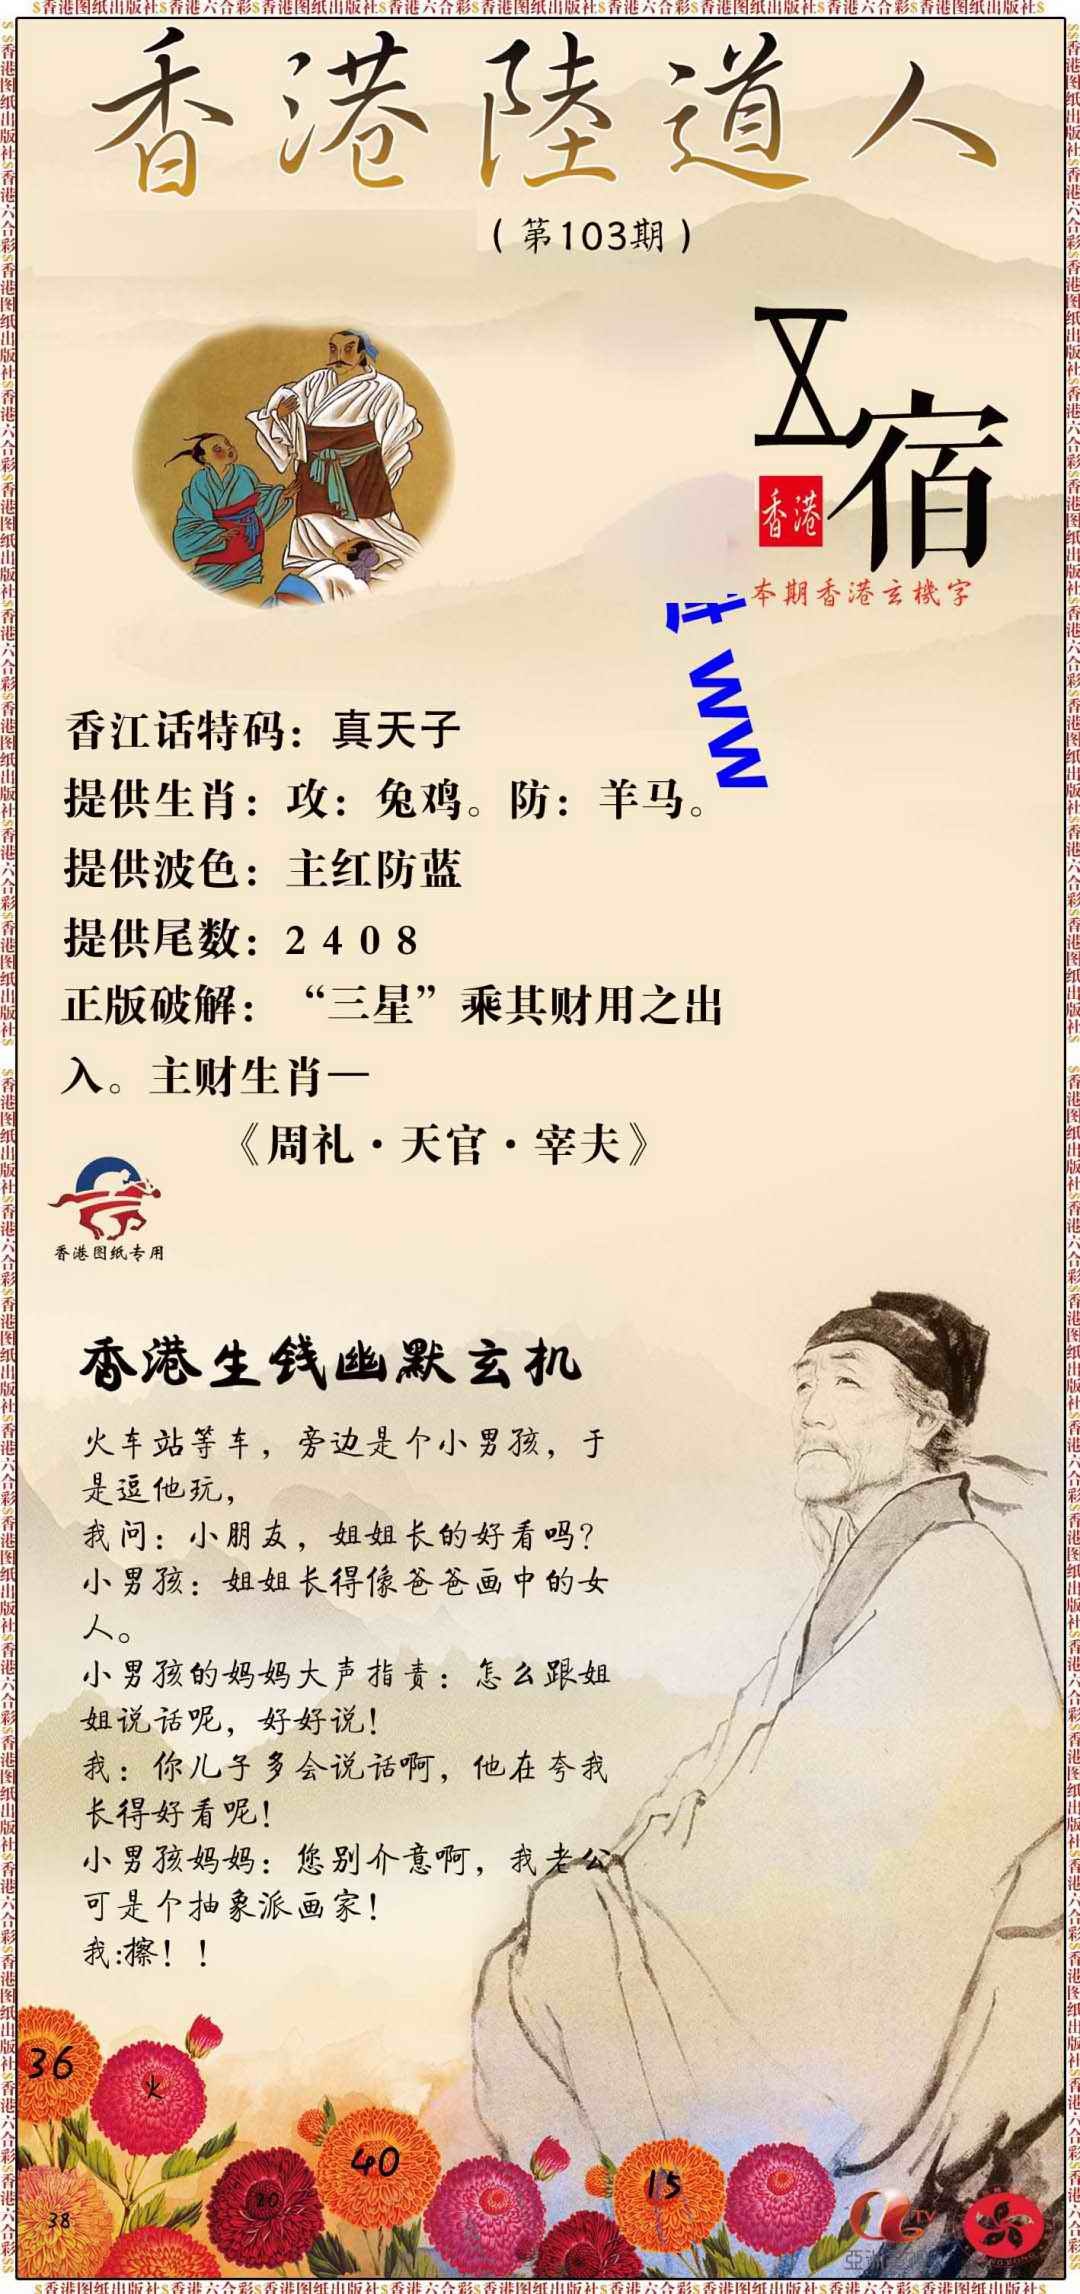 $香港图纸出版社$香港六合彩$香港图纸出版社$香港六合彩$香港图纸出版社$香港六合彩$香港图纸出版社$
香港陸道人
（第103期）
宿
香港
本期香港玄機字
WW
香江话特码：真天子
提供生肖：攻：兔鸡。防：羊马。
提供波色：主红防蓝
提供尾数：2408
正版破解：“三星”乘其财用之出
入。主财生肖—
《周礼·天官·宰夫》
香港图纸专用
香港生钱幽默玄机
火车站等车，旁边是个小男孩，于
是逗他玩，
我问：小朋友，姐姐长的好看吗？
小男孩：姐姐长得像爸爸画中的女
人。
小男孩的妈妈大声指责：怎么跟姐
姐说话呢，好好说！
我：你儿子多会说话啊，他在夸我
长得好看呢！
小男孩妈妈：您别介意啊，我老公
可是个抽象派画家！
我:擦！！
36
火
40
15
20
38
TV
$香港图纸出版社$香港六合彩$香港图纸出版社$香港六合彩$香港图纸出版社$香港六合彩$香港图纸出版社$